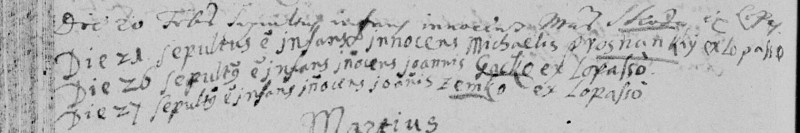 Die 20 Febr Sepultus infans innocens ex Lopas
Die 21 sepultus ē infans innocens Michaelis Posnanskij ex Lopasso
Die 26 sepultꝰ ē infans iñocens joannis ex Lopassō
Die 27 sepultꝰ ē infans iñocens joañis Zemko ex Lopassō
Martius